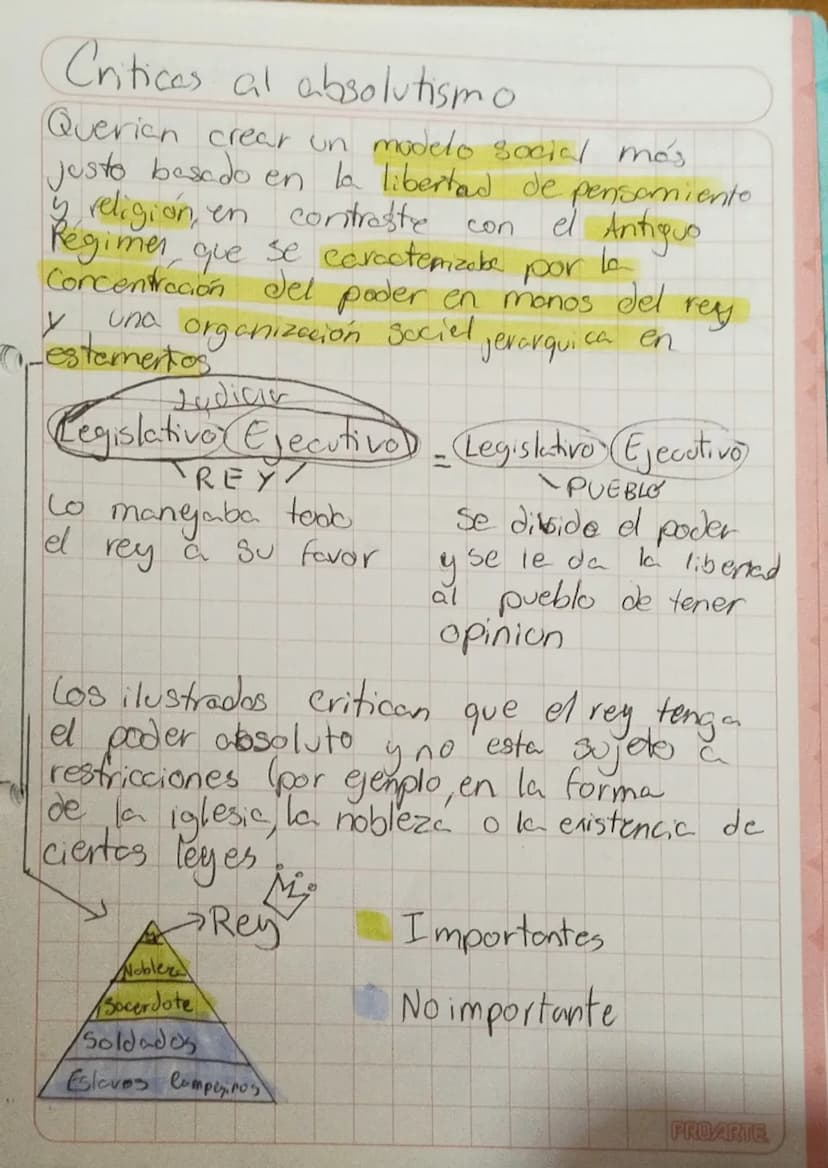 Criticas al absolutismo
Querian crear un modelo social más
justo basado en la libertad de pensamiento
y religión, en contraste con el Antiguo
Régimen, que se caracterizaba por la
concentración del poder en manos del rey
y una organización social jerarquica en
estamentos
Judicial
Legislativo Ejecutivo = Legislativo Ejecutivo
REY
PUEBLO
Lo manejaba todo
el rey a su favor
se divide el poder
y se le da la libertad
al pueblo de tener
opinion
Los ilustrados critican que el rey tenga
el poder absoluto y no esta sujeto a
restricciones (por ejenplo, en la forma
de la iglesia, la nobleza o la existencia de
ciertas leyes.
Rey
Nobleza
Sacerdote
Soldados
Eslavos Campesinos
Importantes
No importante
PROARTE